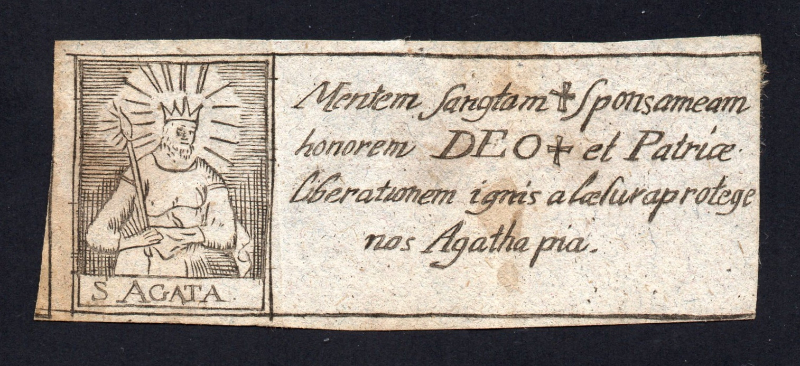 Mentem sanctam ✝ Sponsameam
honorem DEO ✝ et Patriæ
liberationem ignis a læsura protege
nos Agatha pia.
S AGATA